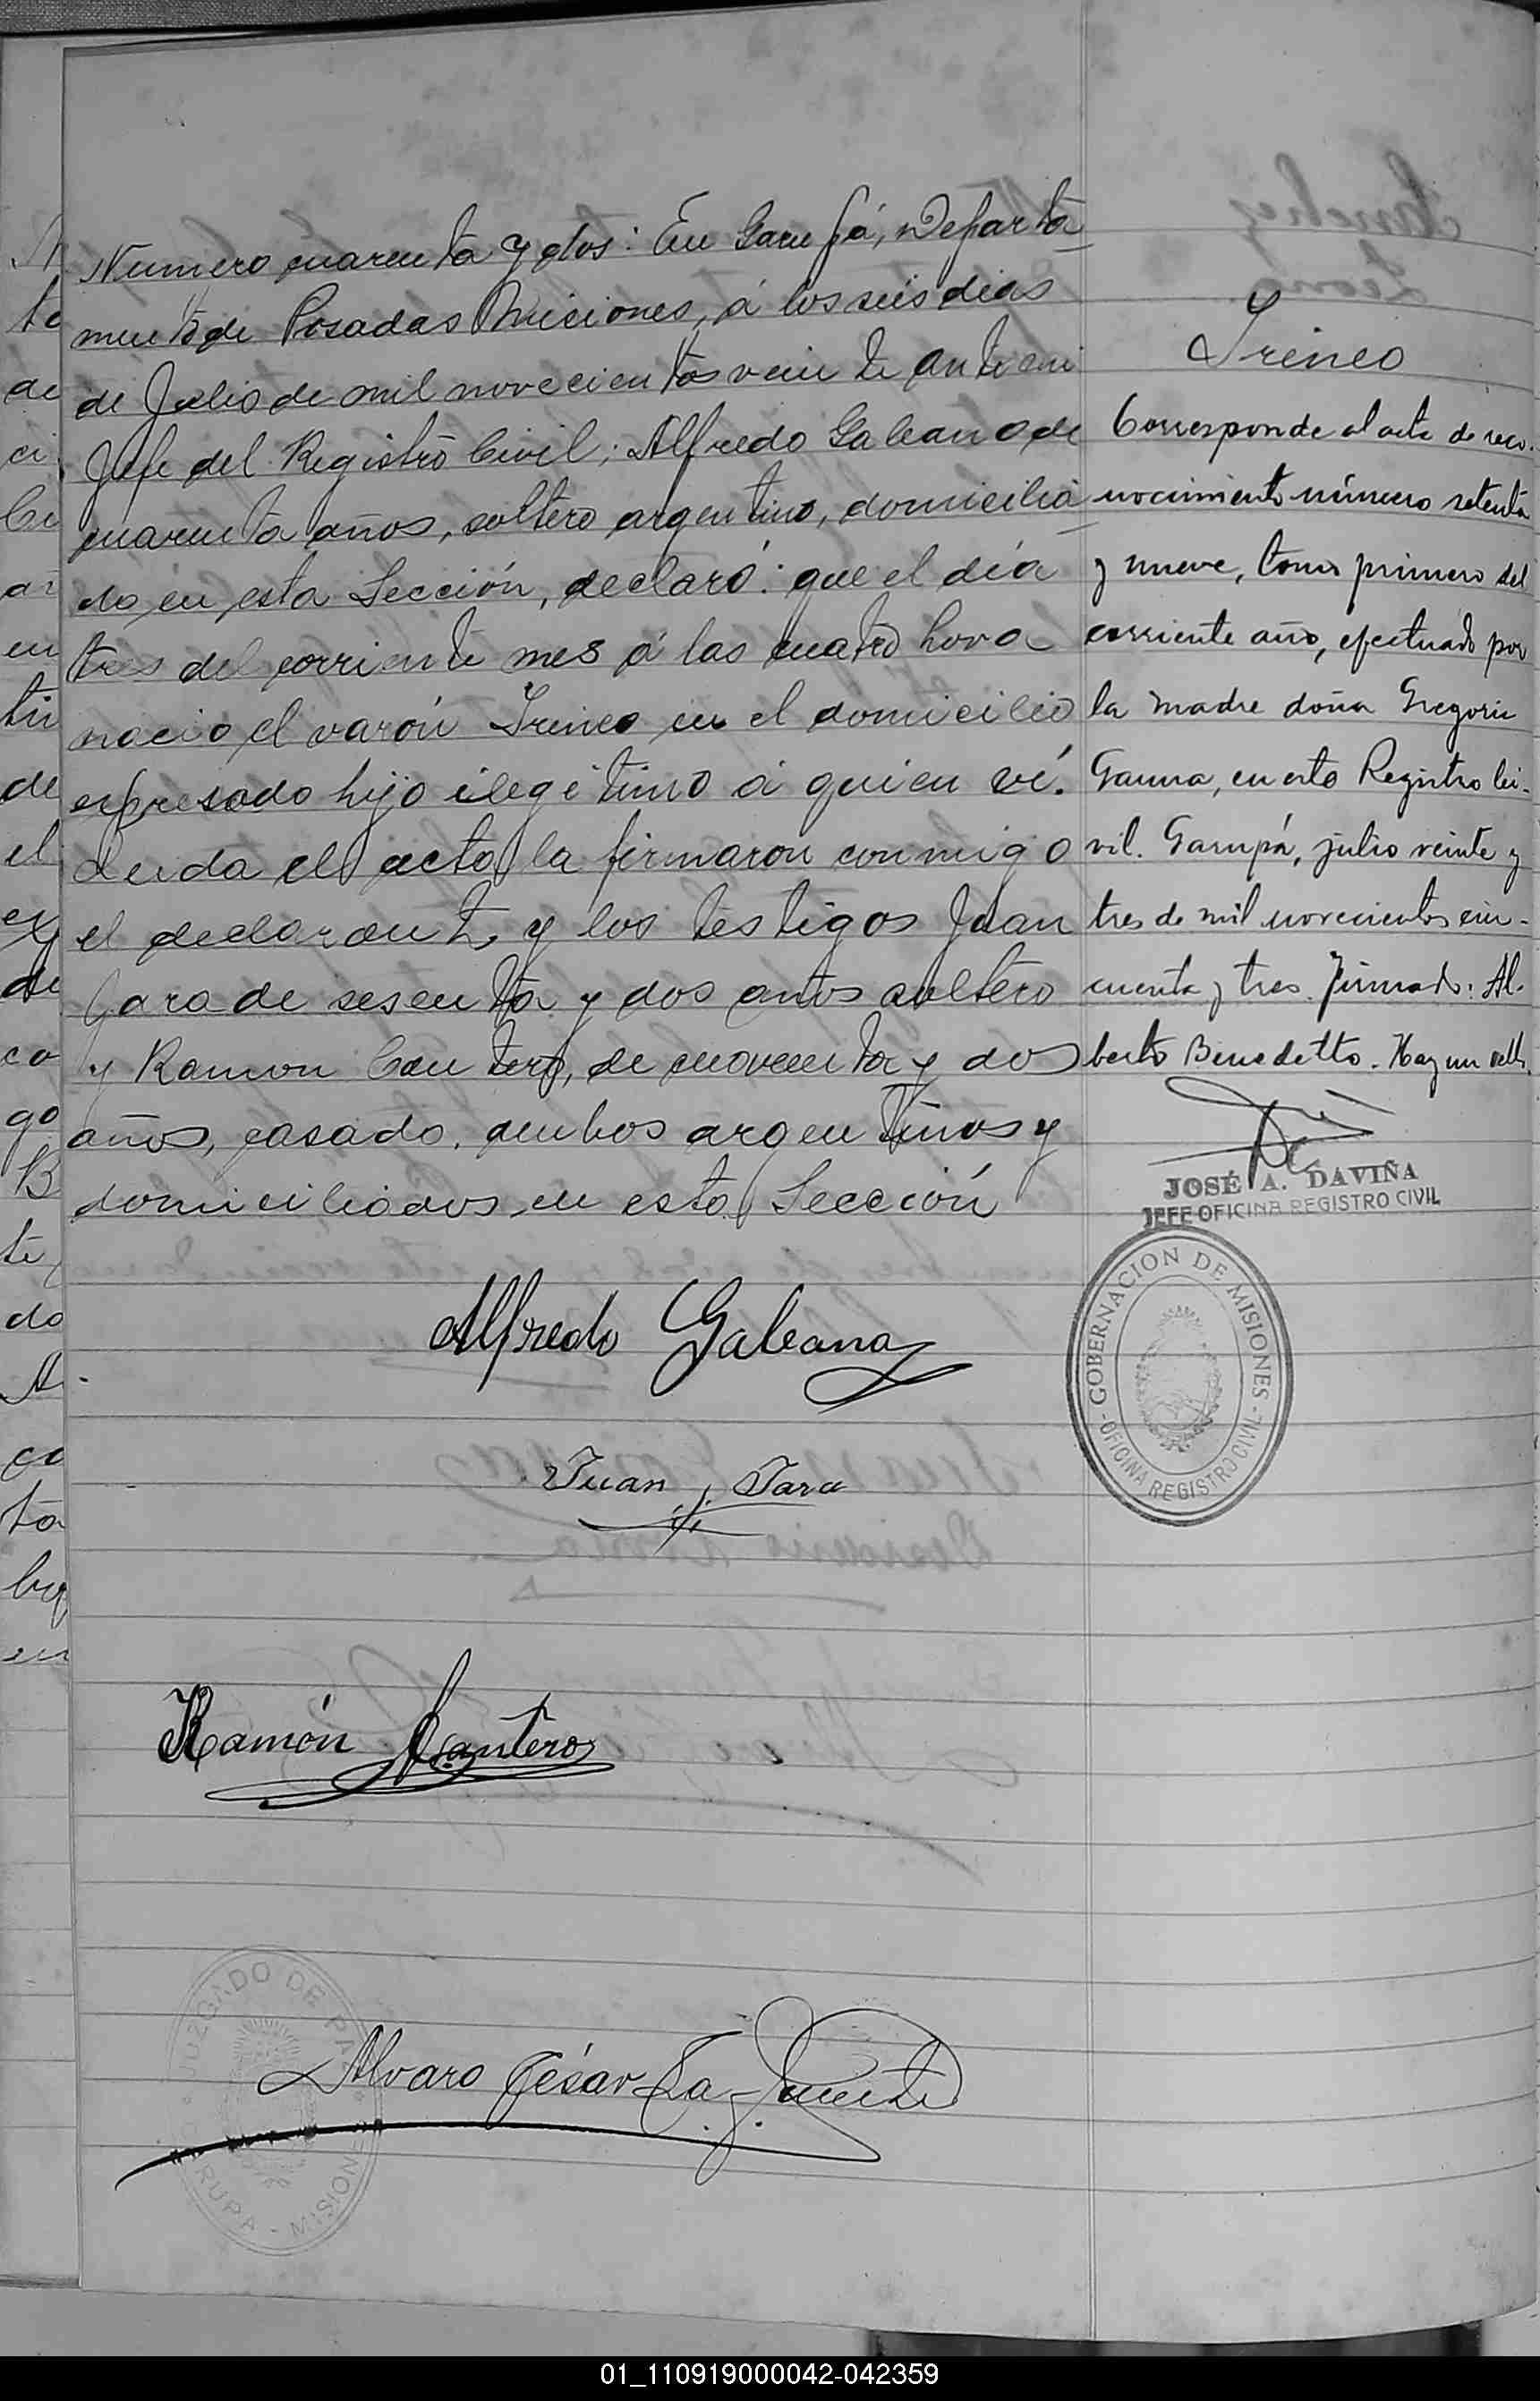 Numero cuarenta y dos: En Garupá, Departa-
mento de Posadas Miciones, á los seis dias
de Julio de mil novecientos veinte ante mi
Jefe del Registro Civil; Alfredo Galeano de
cuarenta años, soltero argentino, domicilia-
do en esta Sección, declaró: que el día
tres del corriente mes á las cuatro hora
nacio el varón Ireneo en el domicilio
expresado hijo ilegitimo á quien ví.
Leida el acta la firmaron conmigo
el declarante y los testigos Juan
Jara de sesenta y dos años soltero
y Ramon Cantero, de cuarenta y dos
años, casado, ambos argentinos y
domiciliados en esta Sección
Alfredo Galeano
Juan Jara
Ramón Cantero
Alvaro César La Fuente
JUZGADO DE PAZ
GARUPA - MISIONES
Ireneo
Corresponde al acta de reco-
nocimiento número setenta
y nueve, tomo primero del
corriente año, efectuado por
la madre doña Gregoria
Gauna, en esta Registro Ci-
vil. Garupá, julio veinte y
tres de mil novecientos cin-
cuenta y tres. Firmado: Al-
berto Benedetto. Hay un sello.
JOSÉ A. DAVIÑA
JEFE OFICINA REGISTRO CIVIL
GOBERNACION DE MISIONES
- OFICINA REGISTRO CIVIL -
01_110919000042-042359